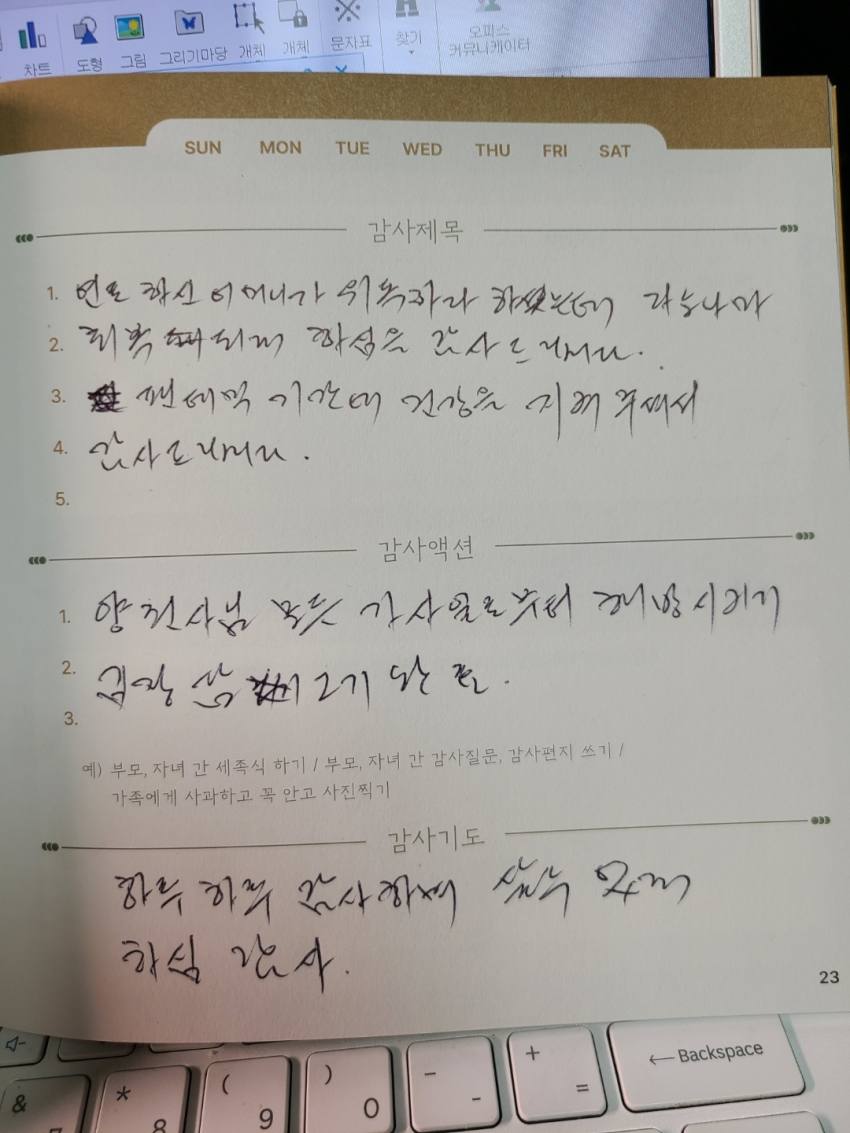 차트 도형 그림 그리기마당 개체 개체 문자표 찾기 오피스
커뮤니케이터
SUN MON TUE WED THU FRI SAT
감사제목
1. 연로 하신 어머니가 위독하라 하셨는데
2. 회복 되게 하심을 감사드립니다.
3. 팬데믹 기간에 건강을 지켜 주셔서
4. 감사드립니다.
5.
감사액션
1. 양 천사님 모든 가사 일로부터 해방시키기
2. 김장 삼
3.
예) 부모, 자녀 간 세족식 하기 / 부모, 자녀 간 감사질문, 감사편지 쓰기 /
가족에게 사과하고 꼭 안고 사진찍기
감사기도
하루 하루 감사하며 살수 있게
하심 감사.
23
& 7 * 8 ( 9 ) 0 - - + = ← Backspace